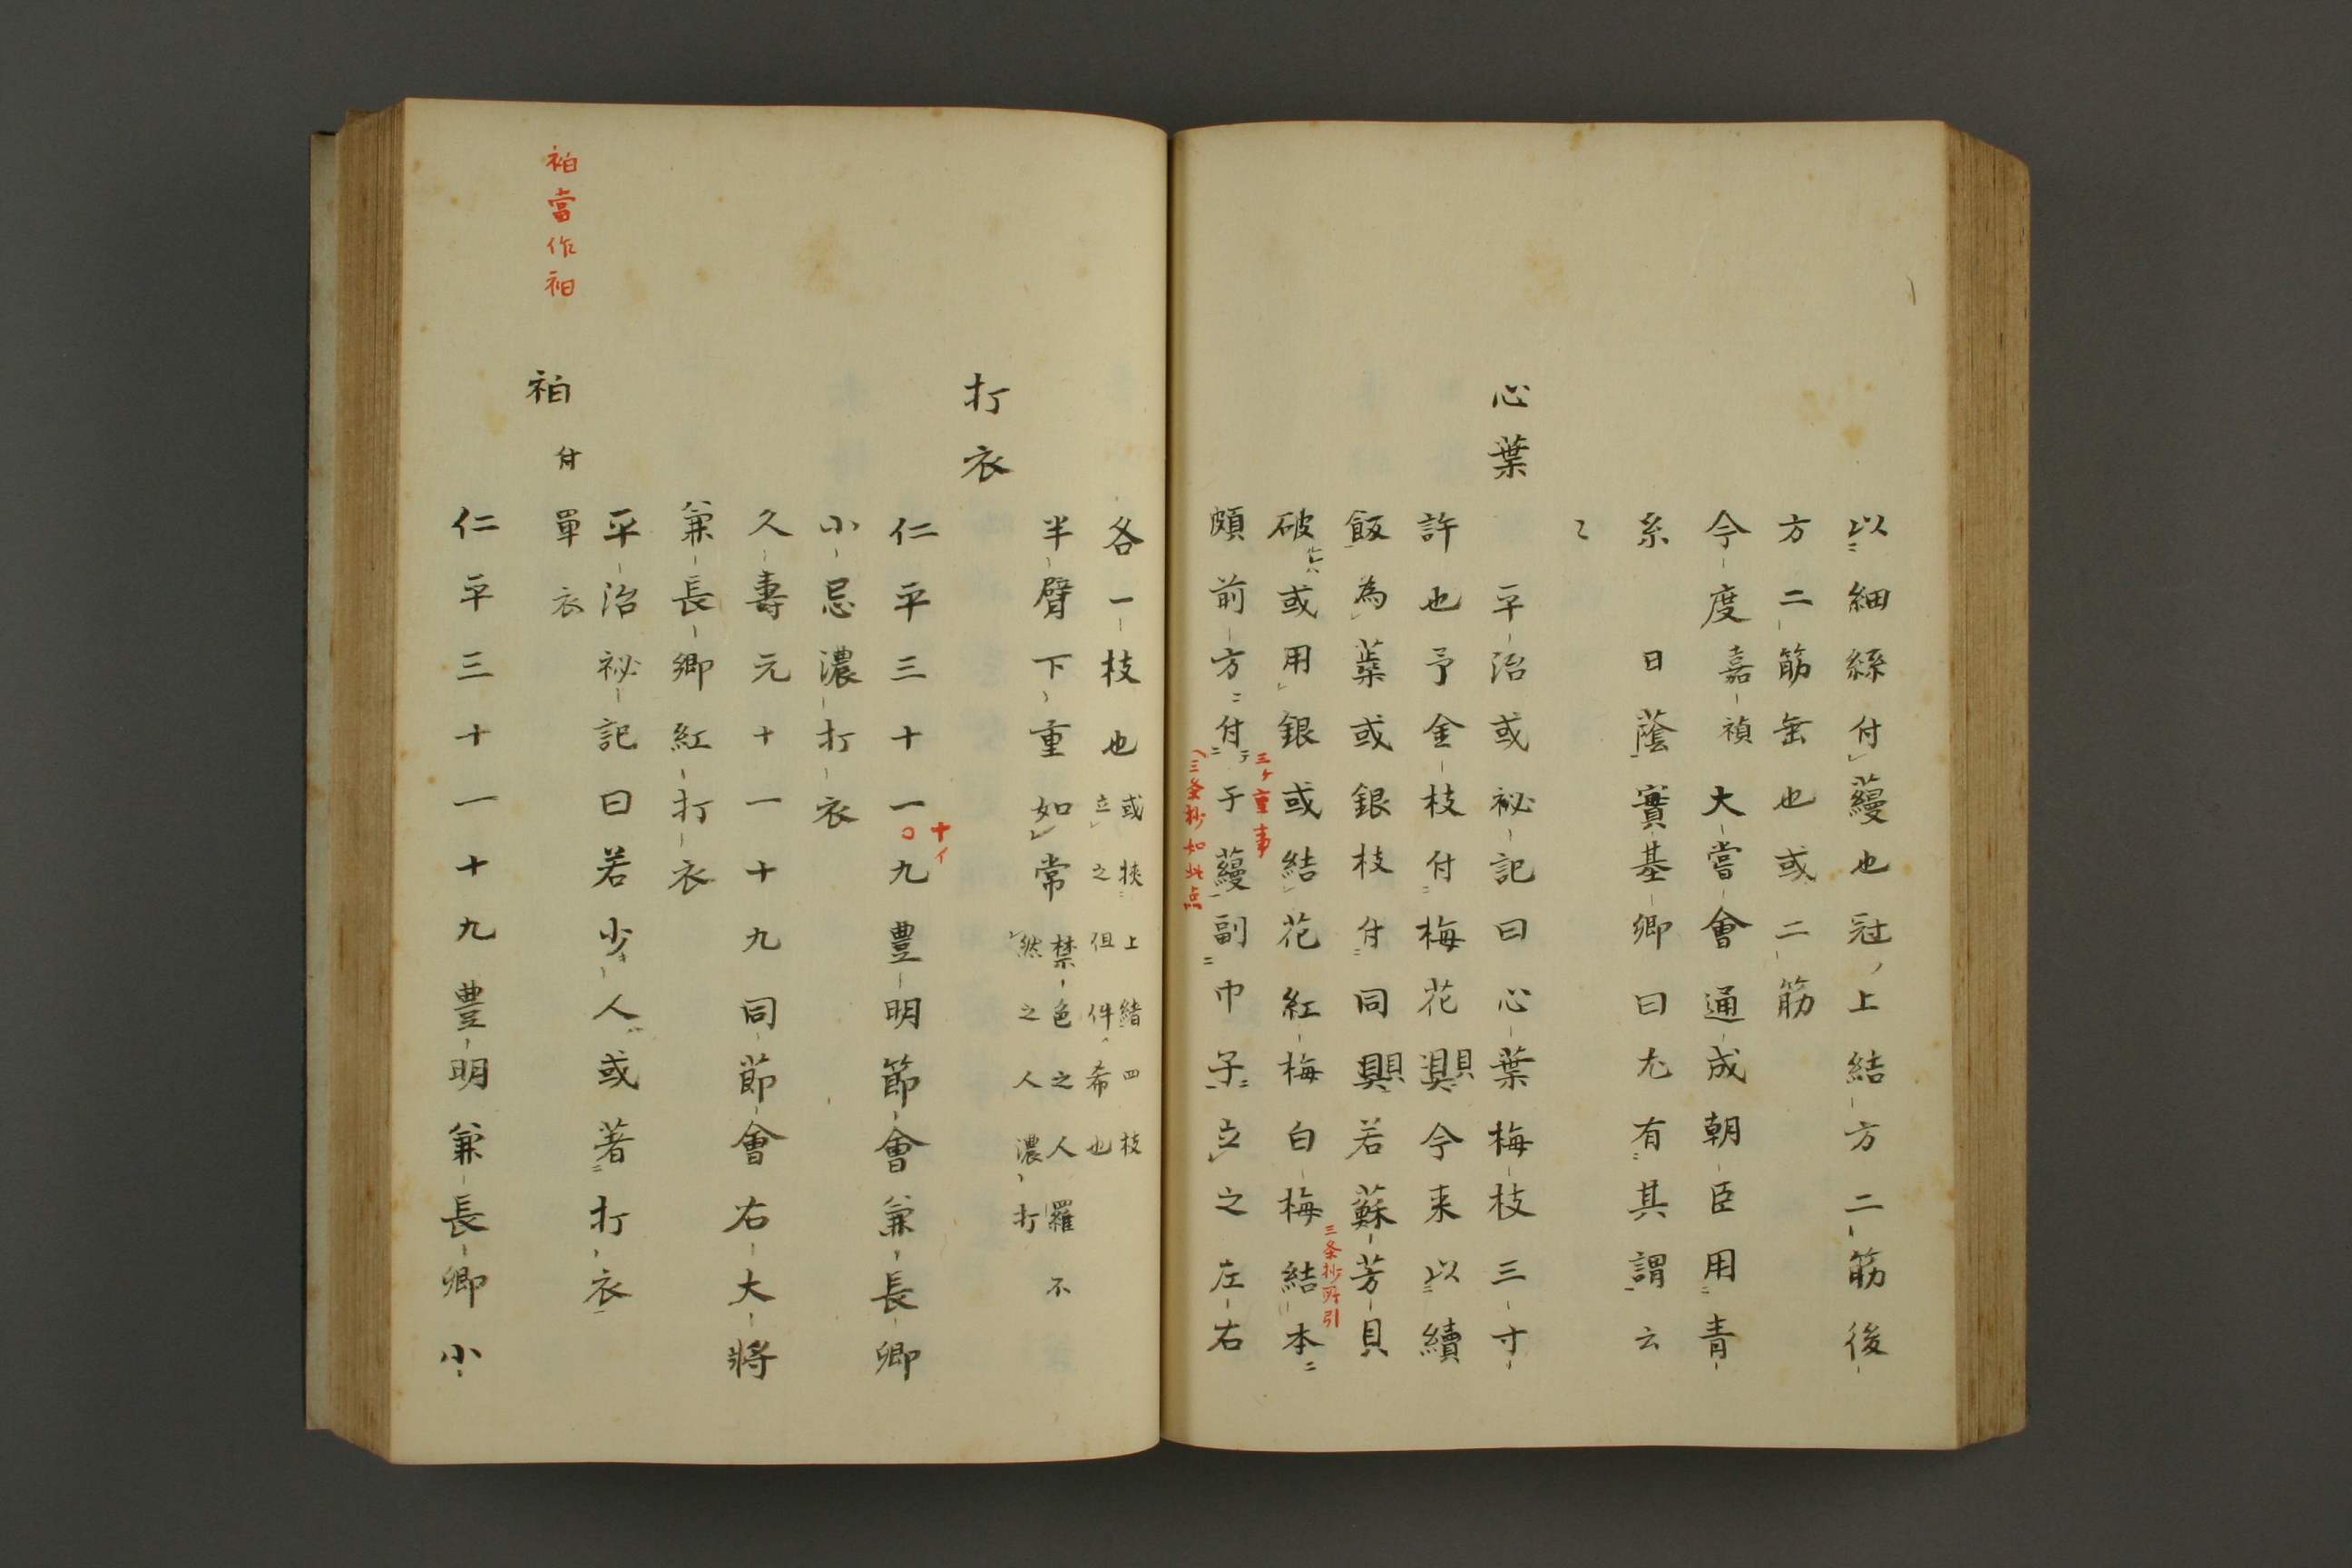 以細絲付蘰也冠上結方二筋後
方二筋垂也或二筋
今度嘉禎大嘗會通成朝臣用青
糸 日蔭實基卿曰尤有其謂云
〻
心葉
平治或祕記曰心葉梅枝三寸
許也予金枝付梅花今来以續
飯為葉或銀枝付同若蘇芳貝
破或用銀或結花紅梅白梅結本
三条抄所引
頗前方付于蘰副巾子立之左右
三ケ重事
三条抄如此点
各一枝也或挾上緒四枝
立之但件希也
半臂下重如常禁色之人羅不
然之人濃打
打衣
仁平三十一九豊明節會兼長卿
十イ
小忌濃打衣
久壽元十一十九同節會右大将
兼長卿紅打衣
平治祕記曰若少人或著打衣
袙當作衵
袙 付單衣
仁平三十一十九豊明兼長卿小